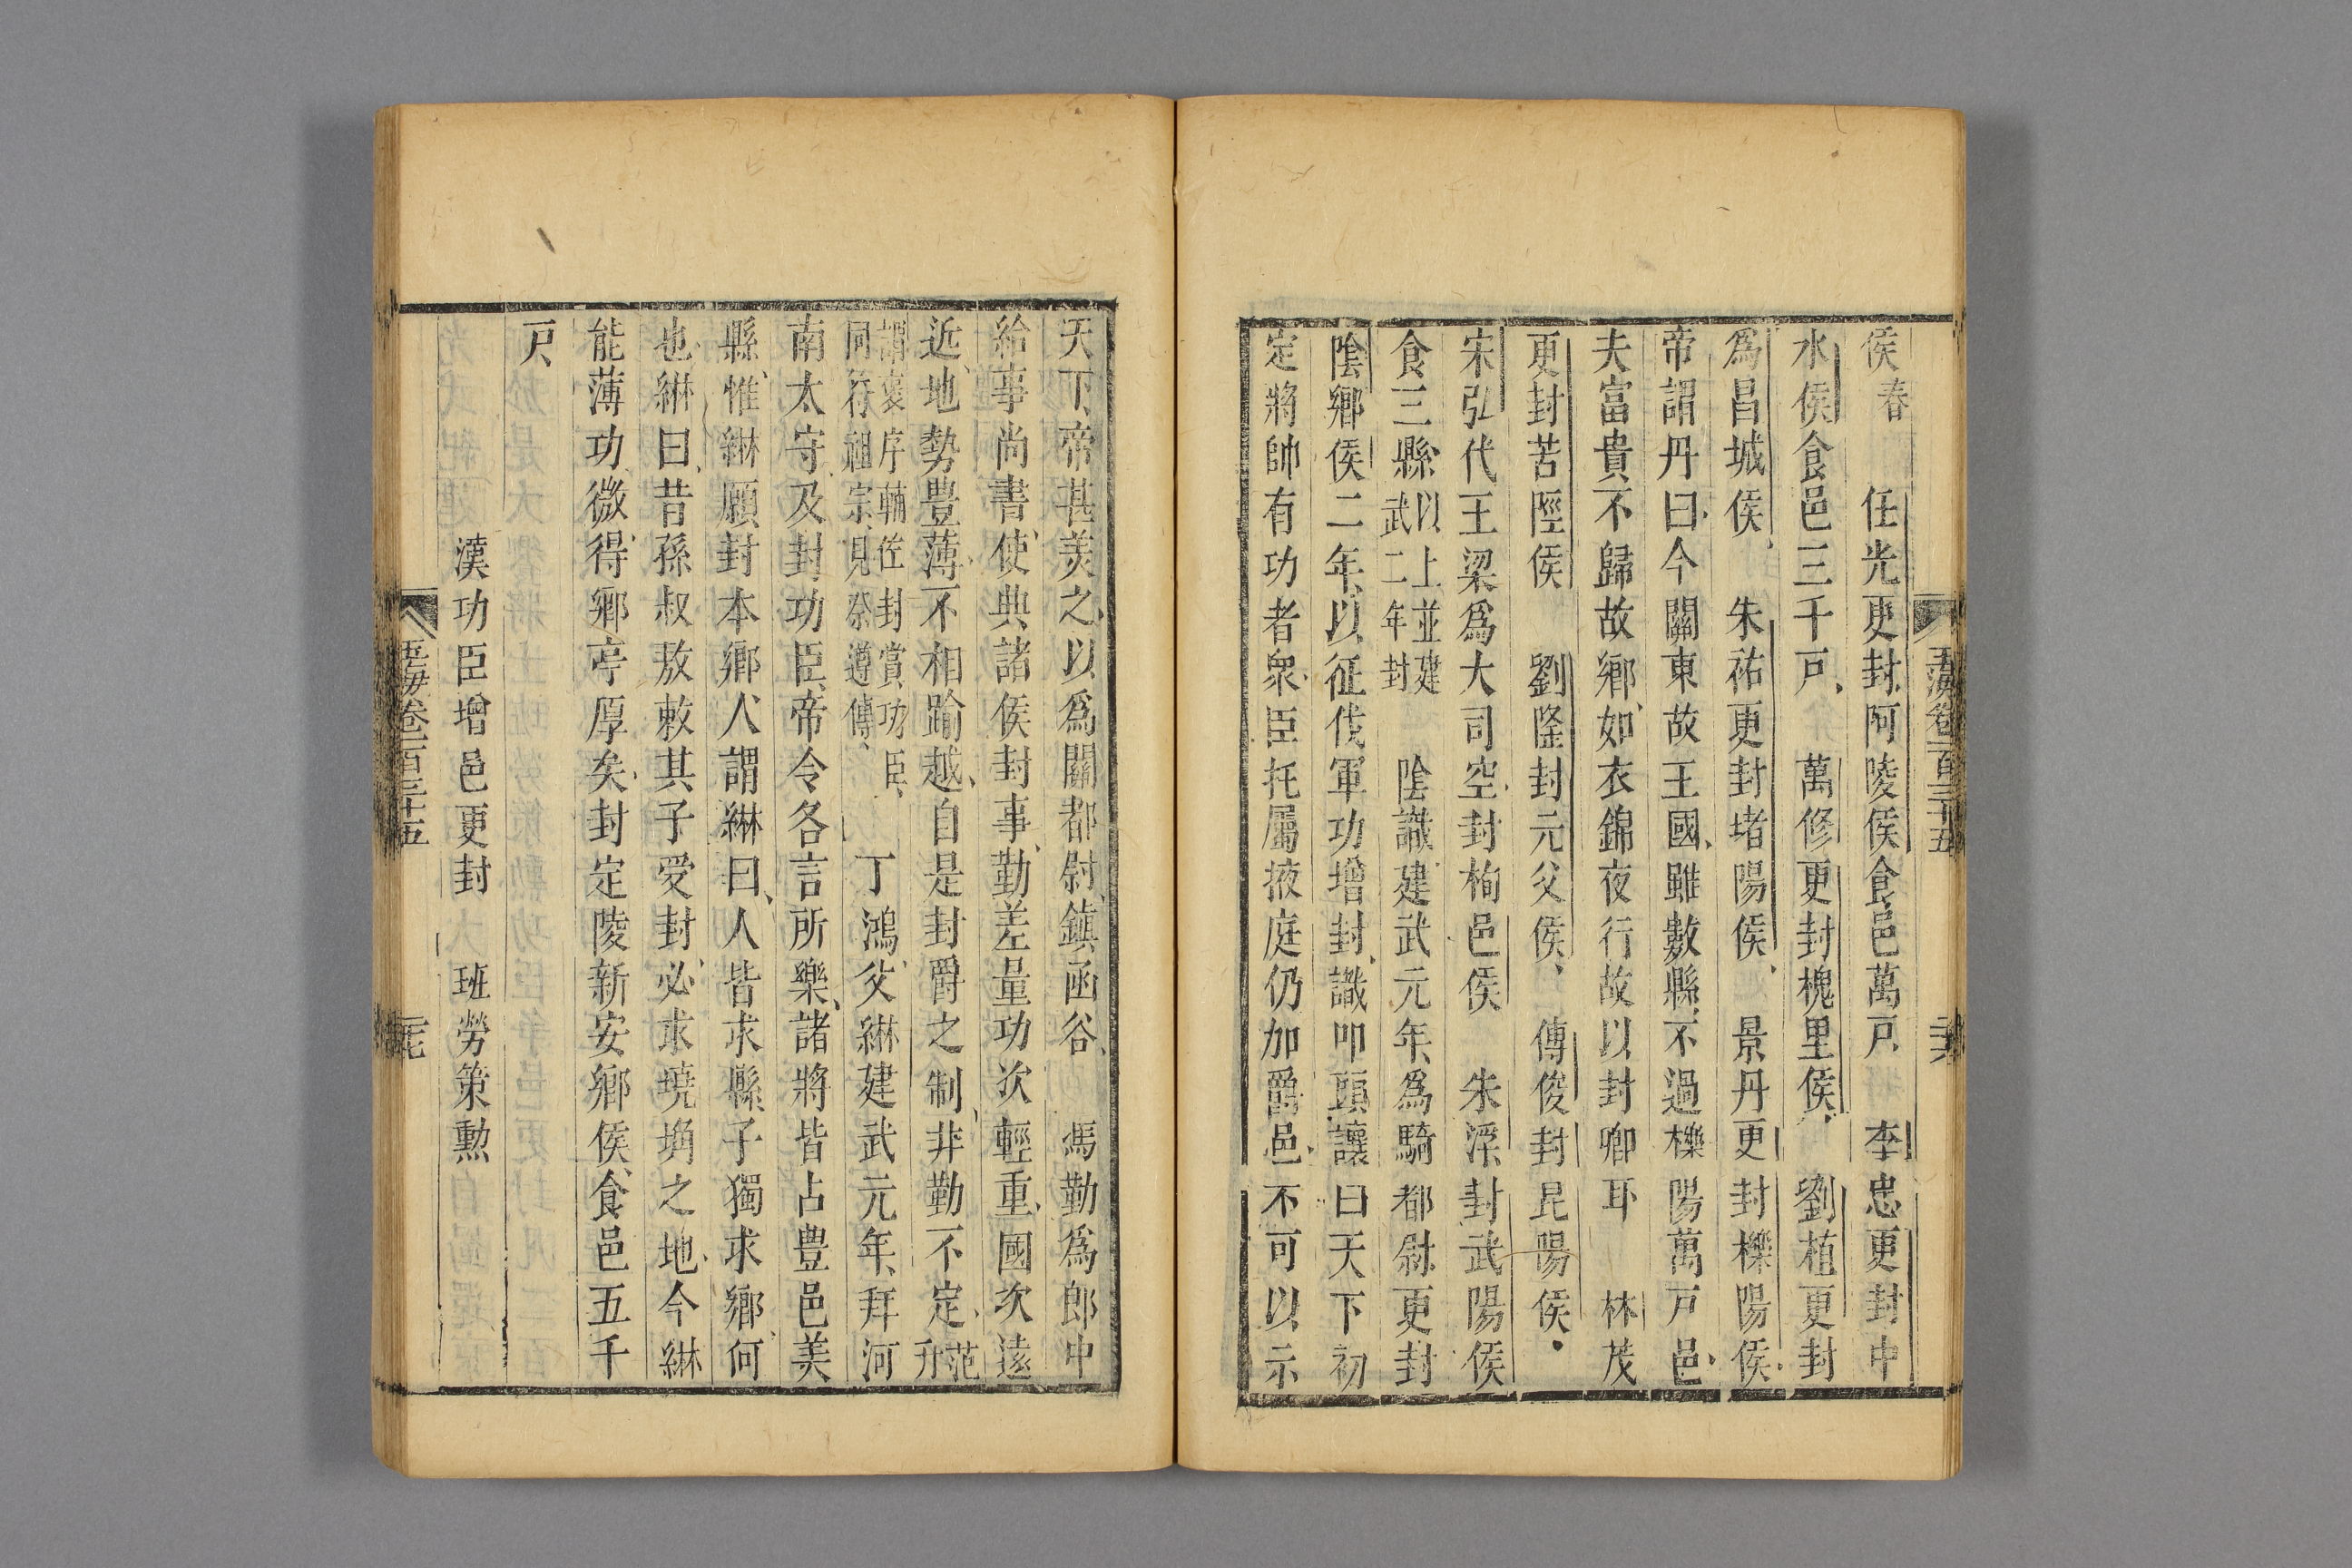 玉海卷一百三十五 二十六
侯春 任光更封阿陵侯食邑萬戸 李忠更封中
水侯食邑三千戸 萬修更封槐里侯 劉植更封
爲昌城侯 朱祐更封堵陽侯 景丹更封櫟陽侯
帝謂丹曰今關東故王國雖數縣不過櫟陽萬戸邑
夫富貴不歸故鄉如衣錦夜行故以封卿耳 林茂
更封苦陘侯 劉隆封元父侯 傅俊封昆陽侯
宋弘代王梁爲大司空封栒邑侯 朱浮封武陽侯
食三縣以上並建武二年封 陰識建武元年爲騎都尉更封
陰鄉侯二年以征伐軍功增封識叩頭讓曰天下初
定將帥有功者衆臣托屬掖庭仍加爵邑不可以示
天下帝甚美之以爲關都尉鎮函谷 馮勤爲郎中
給事尚書使典諸侯封事勤差量功次輕重國次遠
近地勢豊薄不相踰越自是封爵之制非勤不定范升
謂褒序輔佐封賞功臣同符祖宗見祭遵傳 丁鴻父綝建武元年拜河
南太守及封功臣帝令各言所樂諸將皆占豊邑美
縣惟綝願封本鄉人謂綝曰人皆求縣子獨求鄉何
也綝曰昔孫叔敖敕其子受封必求墝埆之地今綝
能薄功微得鄉亭厚矣封定陵新安鄉侯食邑五千
戸
漢功臣增邑更封 班勞策勲
玉海卷一百三十五 二十七